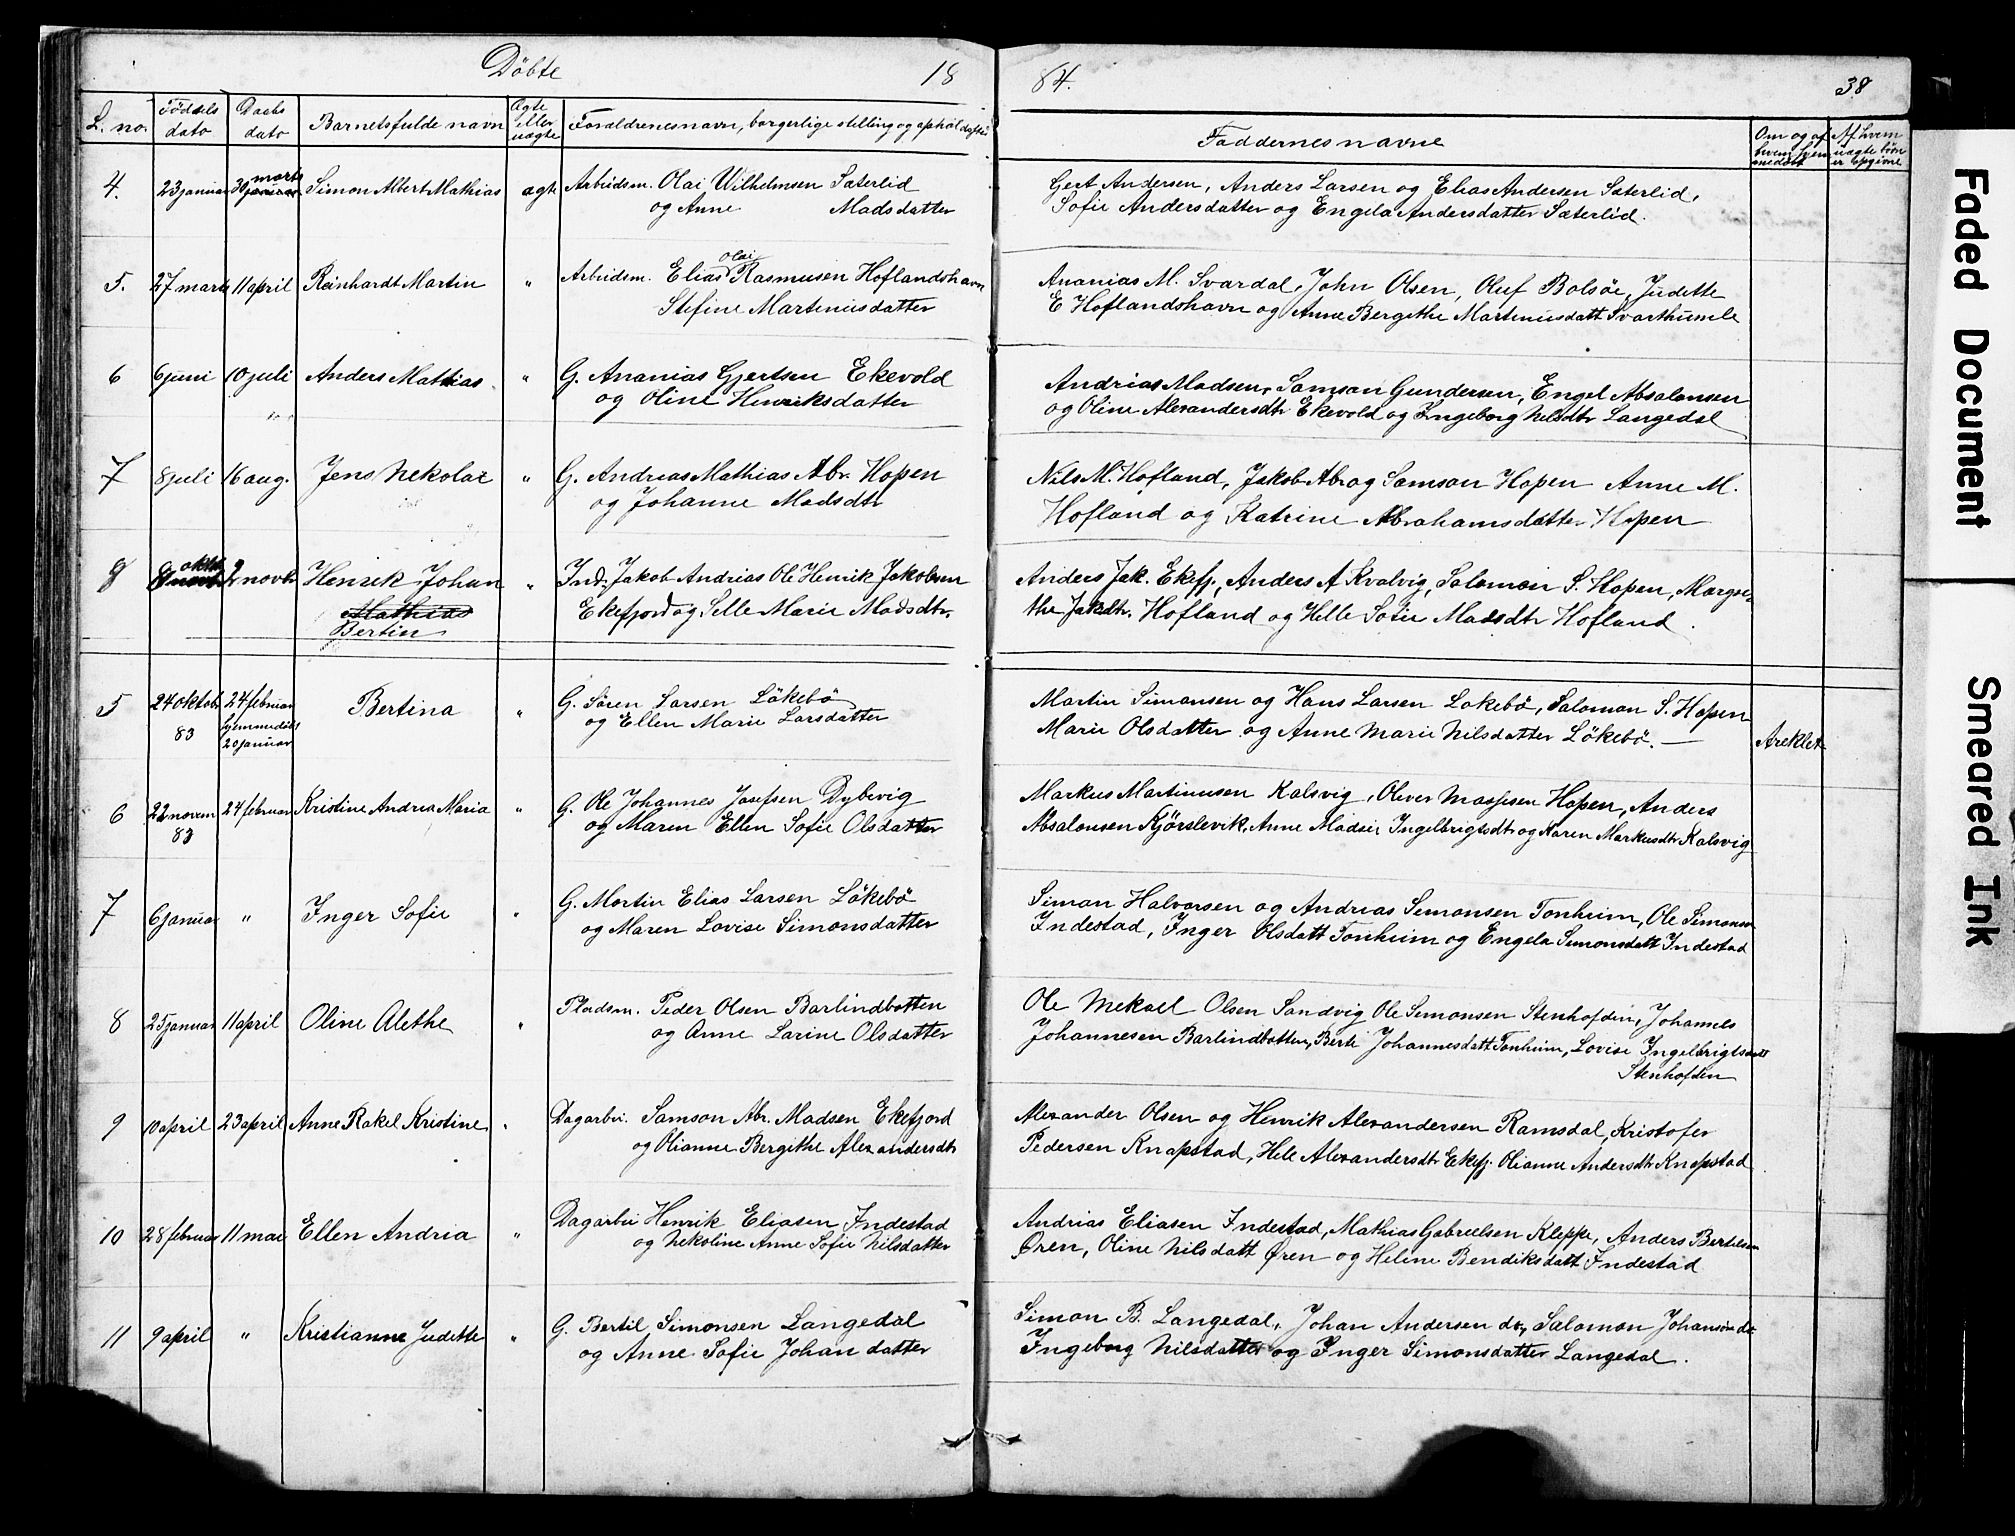 Döbte 18
84. 38
L. no. Födsels dato Daabs dato Barnets fulde navn Ægte eller uægte Forældrenes navn, borgerlige stilling og opholdssted
Faddernes navne Om og af hvem hjemmedöbt Af hvem uægte börn er opgivne
4. 23 januar 30 januar marts Simon Albert Mathias ægte Arbeidsm. Olai Wilhelmsen Sæterlid
og Anne Madsdatter
Gert Andersen, Anders Larsen og Elias Andersen Sæterlid,
Sofie Andersdatter og Engela Andersdatter Sæterlid.
5. 27 marts 11 april Reinhardt Martin " Arbeidsm. Elias Olai Rasmusen Hoflandshavn
Stefine Martinusdatter
Ananias M. Svardal, John Olsen, Oluf Bolsöe, Judette
E Hoflandshavn og Anne Bergithe Martinusdatt Svarthumle
6 6 juni 10 juli Anders Mathias " G. Ananias Gjertsen Ekevold
og Oline Henriksdatter
Andrias Madsen, Samson Gundersen, Engel Absalonsen
og Oline Alexandersdtr Ekevold og Ingeborg Nilsdtr Langedal
7 8 juli 16 aug. Jens Nekolai " G. Andreas Mathias Abr. Hopen
og Johanne Madsdtr
Nils M. Hofland, Jakob Abr og Samson Hopen Anne M.
Hofland og Katrine Abrahamsdatter Hopen
8 8 novbr oktbr 2 novbr Henrik Johan " Ind. Jakob Andrias Ole Henrik Jakobsen
Mathias Ekefjord og Sille Marie Madsdtr.
Bertin
Anders Jak. Ekefj., Anders A Kvalvig, Salomon S. Hopen, Margre
the Jakdtr. Hofland og Helle Sofie Madsdtr Hofland.
5 24 oktob 83 24 februar hjemmedöbt 20 januar Bertina " G. Sören Larsen Lökebö
og Ellen Marie Larsdatter
Martin Simonsen og Hans Larsen Lökebö, Salomon S. Hopen
Marie Olsdatter og Anne Marie Nilsdatter Lökebö. —
6 22 novem 83 24 februar Kristine Andrea Maria " G. Ole Johannes Josefsen Dybevig
og Maren Ellen Sofie Olsdatter
Markus Martinusen Kalsvig, Oliver Massesen Hopen, Anders
Absalonsen Kjörslevik, Anne Madsei Ingelbrigtsdtr og Karen Markusdtr Kalsvig
7 6 januar " Inger Sofie " G. Martin Elias Larsen Lökebö
og Maren Lovise Simonsdatter
Simon Halvorsen og Andrias Simonsen Tonheim, Ole Simonsen
Indestad, Inger Olsdatt Tonheim og Engela Simonsdatt Indestad
8 25 januar 11 april Oline Alethe " Pladsm. Peder Olsen Barlindbotten
og Anne Larine Olsdatter
Ole Mekael Olsen Sandvig Ole Simonsen Stenhofden, Johannes
Johannesen Barlindbotten, Berte Johannesdatt Tonheim, Lovise Ingelbrigtsdatt
Stenhofden
9 10 april 23 april Anne Rakel Kristine " Dagarbei. Samson Abr. Madsen Ekefjord
og Olianne Bergithe Alexandersdtr
Alexander Olsen og Henrik Alexandersen Ramsdal, Kristofer
Pedersen Knapstad, Hele Alexandersdtr Ekefj. Olianne Andersdtr Knapstad
10 28 februar 11 mai Ellen Andria " Dagarbei Henrik Eliasen Indestad
og Nekoline Anne Sofie Nilsdatter
Andrias Eliasen Indestad, Mathias Gabrielsen Kleppe, Anders Bertelsen
Øren, Oline Nilsdatt Øren og Heline Bendiksdatt Indestad
11 9 april " Kristianne Judette " G. Bertil Simonsen Langedal
og Anne Sofie Johandatter
Simon B. Langedal, Johan Andersen do, Salomon Johansen do
Ingeborg Nilsdatter og Inger Simonsdatter Langedal.
Faded Document
Smeared Ink